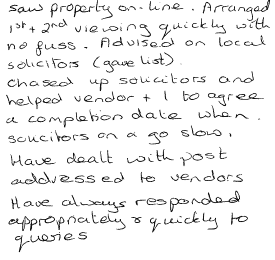 saw property on-line. Arranged
1st + 2nd viewing quickly with
no fuss. Advised on local
solicitors (gave list).
Chased up solicitors and
helped vendor + I to agree
a completion date when
solicitors on a go slow.
Have dealt with post
addressed to vendors
Have always responded
appropriately & quickly to
queries